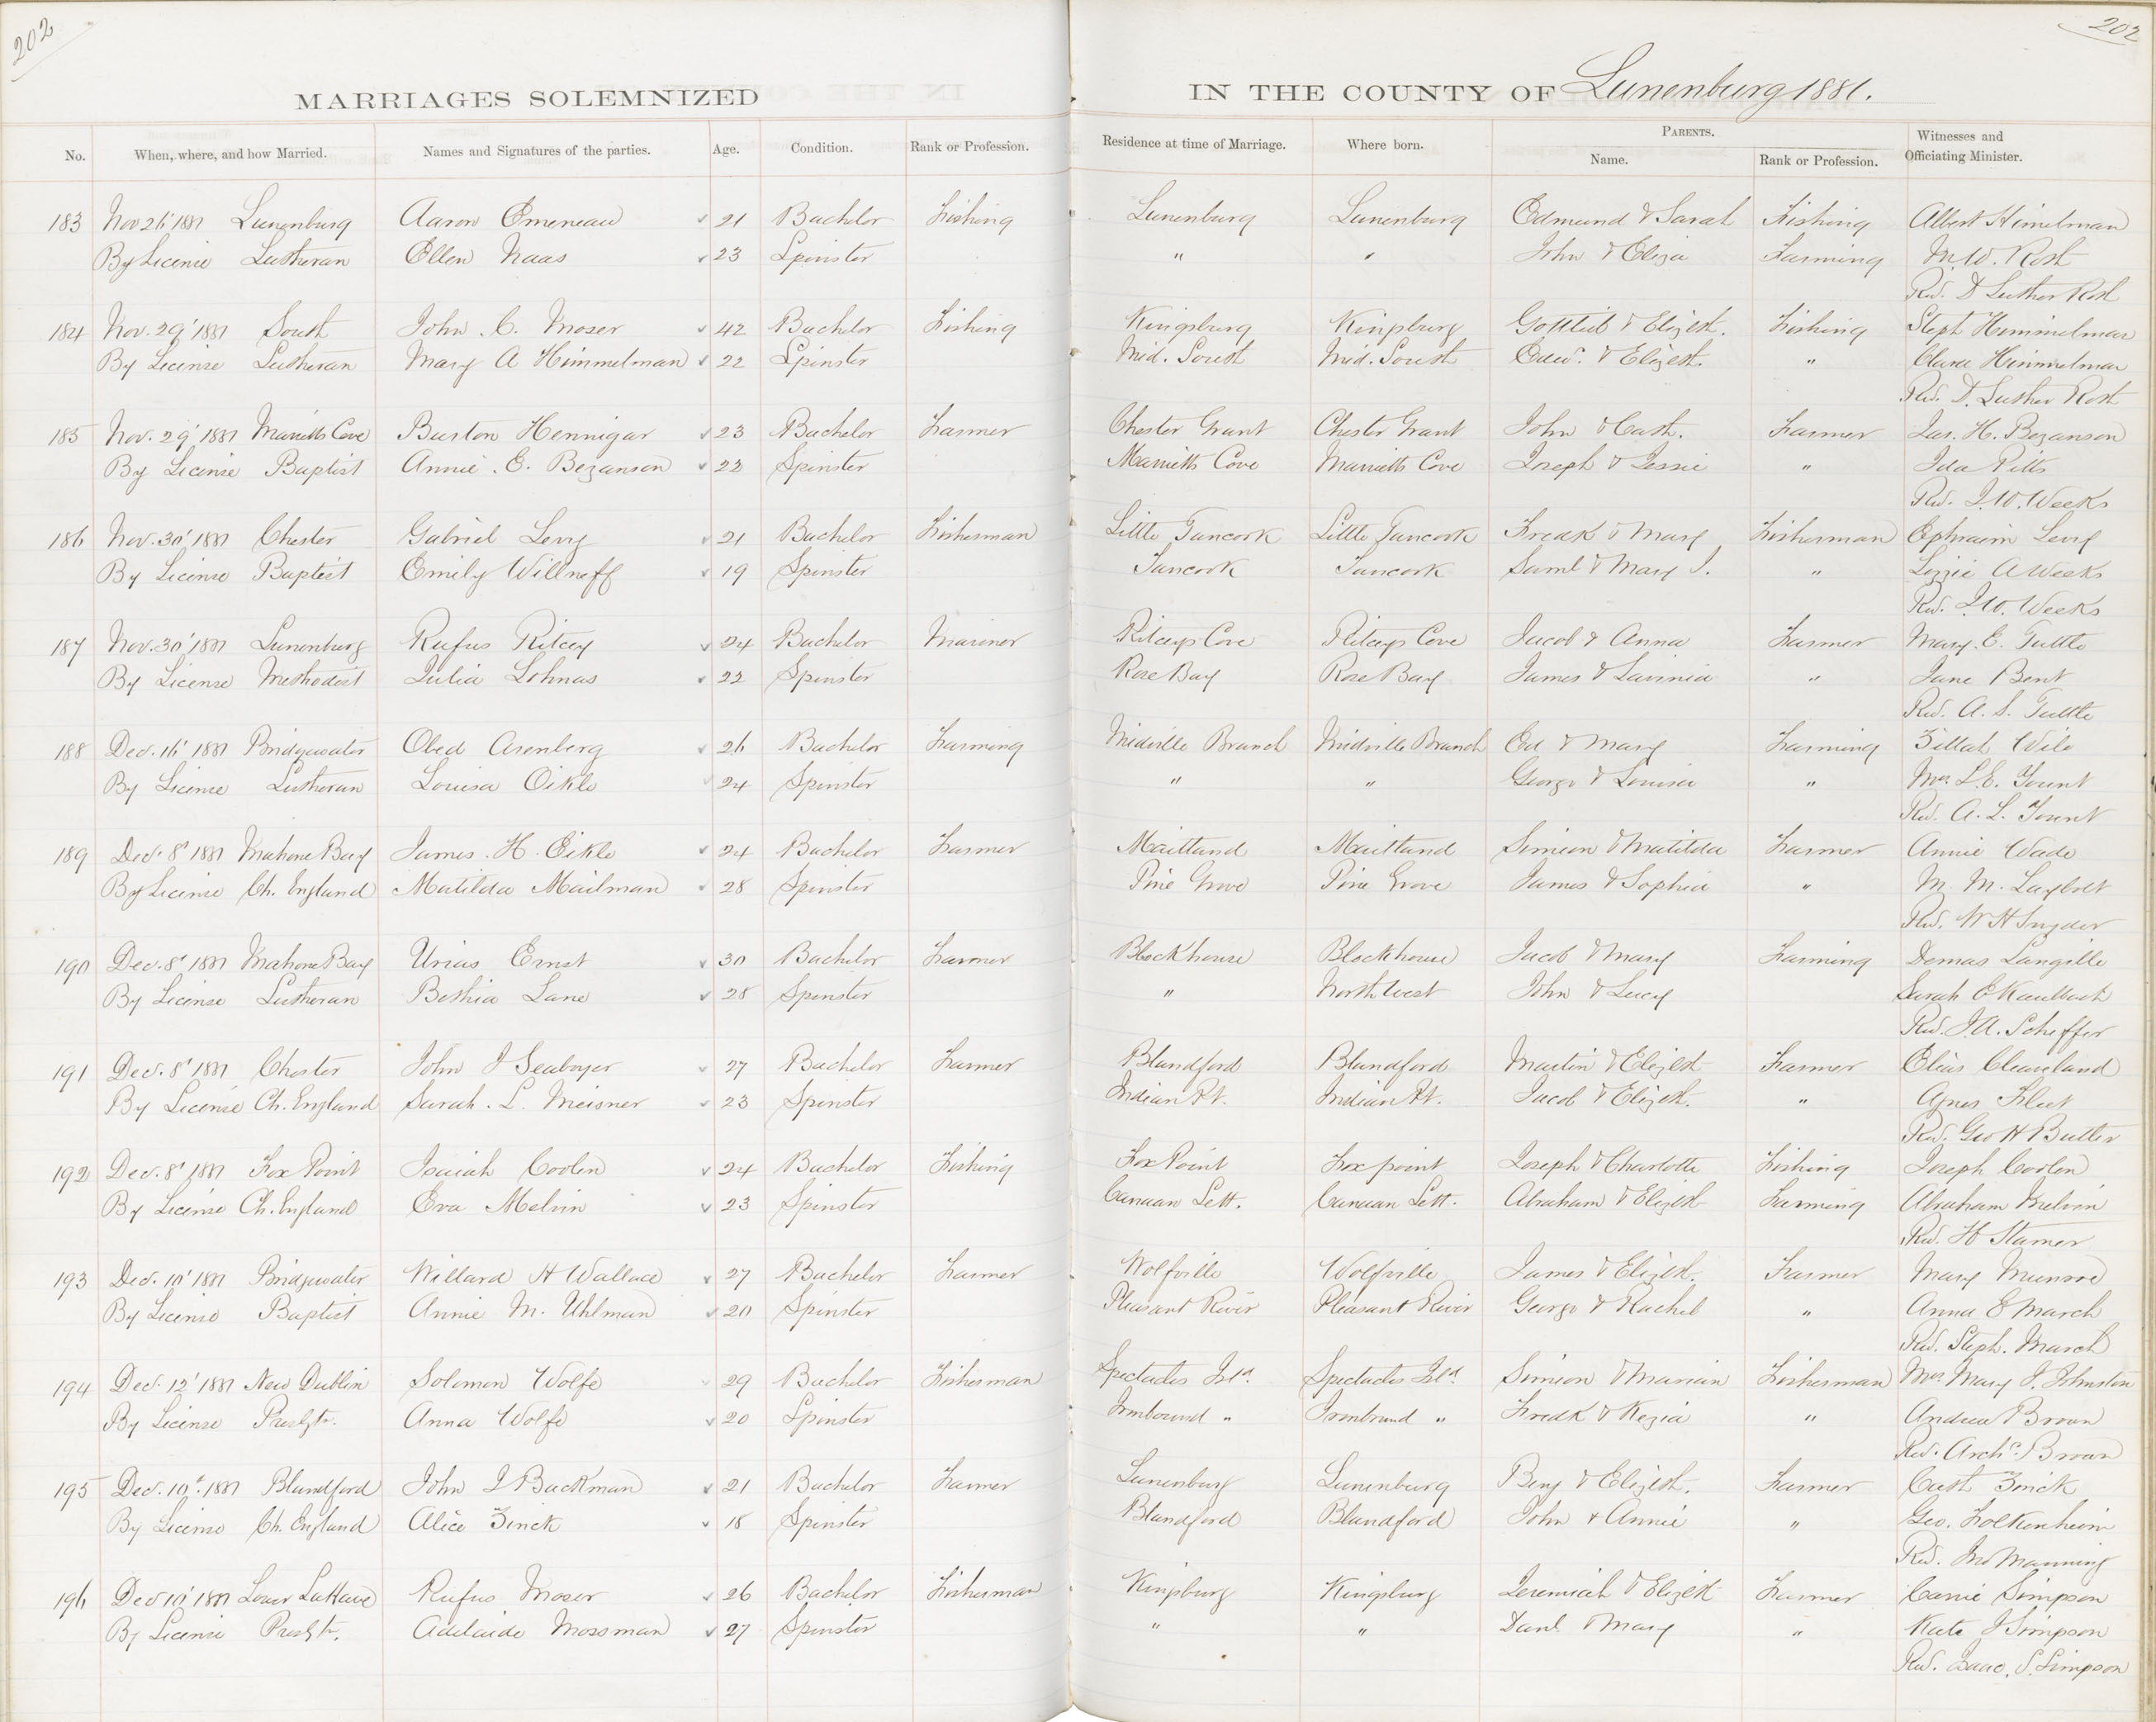 202
202
MARRIAGES SOLEMNIZED IN THE COUNTY OF Lunenburg 1881.
No. When, where, and how Married. Names and Signatures of the parties. Age. Condition. Rank or Profession. Residence at time of Marriage. Where born. PARENTS. Name. Rank or Profession. Witnesses and Officiating Minister.
183 Nov 26' 1881 Lunenburg Aaron Emeneau 21 Bachelor Fishing Lunenburg Lunenburg Edmund & Sarah Fishing Albert Himelman
By License Lutheran Ellen Naas 23 Spinster " " John & Eliza Farming M W. Rost
Rev. D Luther Rost
184 Nov. 29' 1881 South John C. Moser 42 Bachelor Fishing Kingsburg Kingsburg Gottlieb & Elizeth. Fishing Steph Himmelman
By License Lutheran Mary A Himmelman 22 Spinster Mid. South Mid. South Edwd. & Elizeth. " Clara Himmelman
Rev. D. Luther Rost
185 Nov. 29' 1881 Marriotts Cove Burton Hennigar 23 Bachelor Farmer Chester Grant Chester Grant John & Cath. Farmer Jas. H. Bezanson
By License Baptist Annie E. Bezanson 23 Spinster Marriotts Cove Marriotts Cove Joseph & Jessie " Ida Pitts
Rev. I. W. Weeks
186 Nov. 30' 1881 Chester Gabriel Levy 21 Bachelor Fisherman Little Tancook Little Tancook Fredk & Mary Fisherman Ephraim Levy
By License Baptist Emily Willneff 19 Spinster Tancook Tancook Saml & Mary J. " Lizzie A Weeks
Rev. I. W. Weeks
187 Nov. 30' 1881 Lunenburg Rufus Ritcey 24 Bachelor Mariner Ritceys Cove Ritceys Cove Jacob & Anna Farmer Mary. E. Tuttle
By License Methodist Julia Lohnas 22 Spinster Rose Bay Rose Bay James & Lavinia " Jane Bent
Rev. A. S. Tuttle
188 Dec. 16' 1881 Bridgewater Obed Arenberg 26 Bachelor Farming Midville Branch Midville Branch Ed & Mary Farming Zillah Wile
By License Lutheran Louisa Oikle 24 Spinster " " George & Louisa " Mrs L. E. Yount
Rev. A. L. Yount
189 Dec. 8' 1881 Mahone Bay James. H. Eikle 24 Bachelor Farmer Maitland Maitland Simeon & Matilda Farmer Annie Wade
By License Ch. England Matilda Mailman 28 Spinster Pine Grove Pine Grove James & Sophia " M. M. Laybolt
Rev. W H Snyder
190 Dec. 8' 1881 Mahone Bay Urias Ernst 30 Bachelor Farmer Blockhouse Blockhouse Jacob & Mary Farming Demas Langille
By License Lutheran Bethia Lane 28 Spinster " North West John & Lucy Sarah E Kaulback
Rev. J. A. Scheffer
191 Dec. 8' 1881 Chester John J Seaboyer 27 Bachelor Farmer Blandford Blandford Martin & Elizeth Farmer Elias Cleaveland
By License Ch. England Sarah. L. Meisner 23 Spinster Indian Pt. Indian Pt. Jacob & Elizeth. " Agnes Fleet
Rev. Geo H Butler
192 Dec. 8' 1881 Fox Point Isaiah Coolen 24 Bachelor Fishing Fox Point Fox point Joseph & Charlotte Fishing Joseph Coolen
By License Ch. England Eva Melvin 23 Spinster Canaan Sett. Canaan Sett. Abraham & Elizeth Farming Abraham Melvin
Rev. H Stamer
193 Dec. 10' 1881 Bridgewater Willard H Wallace 27 Bachelor Farmer Wolfville Wolfville James & Elizeth. Farmer Mary Munroe
By License Baptist Annie M. Uhlman 20 Spinster Pleasant River Pleasant River George & Rachel " Anna E March
Rev. Steph. March
194 Dec. 12' 1881 New Dublin Solomon Wolfe 29 Bachelor Fisherman Spectacles Isld. Spectacles Isld. Simeon & Marian Fisherman Mrs Mary J. Johnston
By License Presbytr. Anna Wolfe 20 Spinster Ironbound " Ironbound " Fredk & Kezia " Andrew Brown
Rev. Archd. Brown
195 Dec. 10th. 1881 Blandford John I Backman 21 Bachelor Farmer Lunenburg Lunenburg Benj & Elizeth. Farmer Cath Zinck
By License Ch. England Alice Zinck 18 Spinster Blandford Blandford John & Annie " Geo. Folkenheim
Rev. Jno Manning
196 Dec 10' 1881 Lower LaHave Rufus Moser 26 Bachelor Fisherman Kingsburg Kingsburg Jeremiah & Elizeth Farmer Carrie Simpson
By License Presbytr. Adelaide Mossman 27 Spinster " " Danl & Mary " Kate J Simpson
Rev. Isaac. S. Simpson